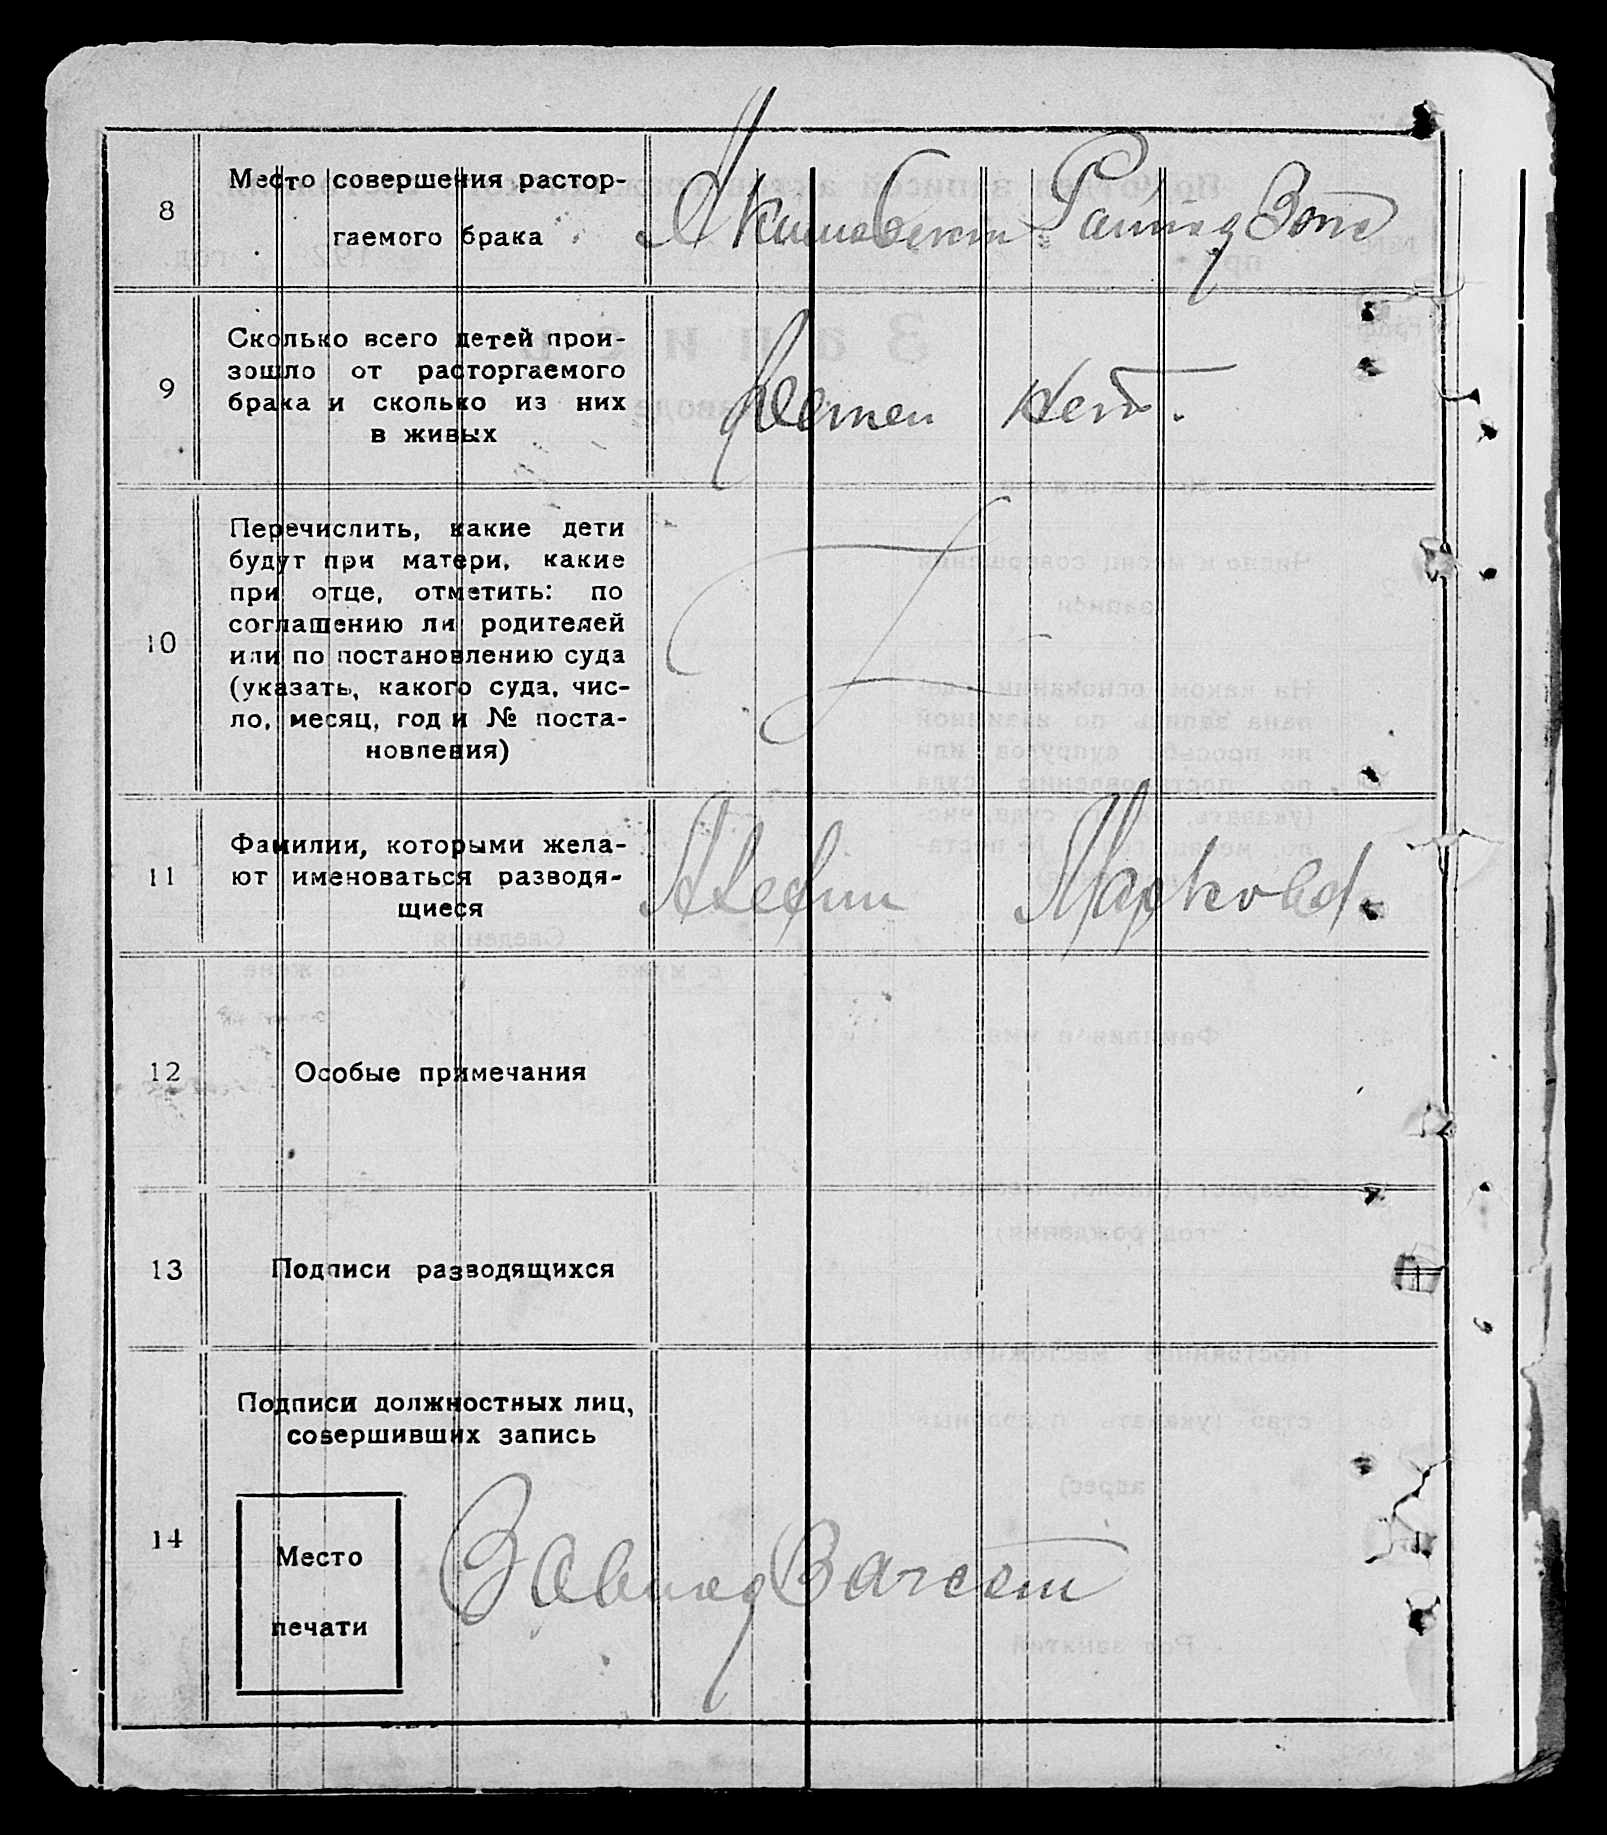 8
Место совершения растор-
гаемого брака
Акимовский РайподЗагс
9
Сколько всего детей прои-
зошло от расторгаемого
брака и сколько из них
в живых
Детей нет.
10
Перечислить, какие дети
будут при матери, какие
при отце, отметить: по
соглашению ли родителей
или по постановлению суда
(указать, какого суда, чис-
ло, месяц, год и № поста-
новления)
11
Фамилии, которыми жела-
ют именоваться разводя-
щиеся
Маркова.
12
Особые примечания
13
Подписи разводящихся
14
Подписи должностных лиц,
совершивших запись
Место
печати